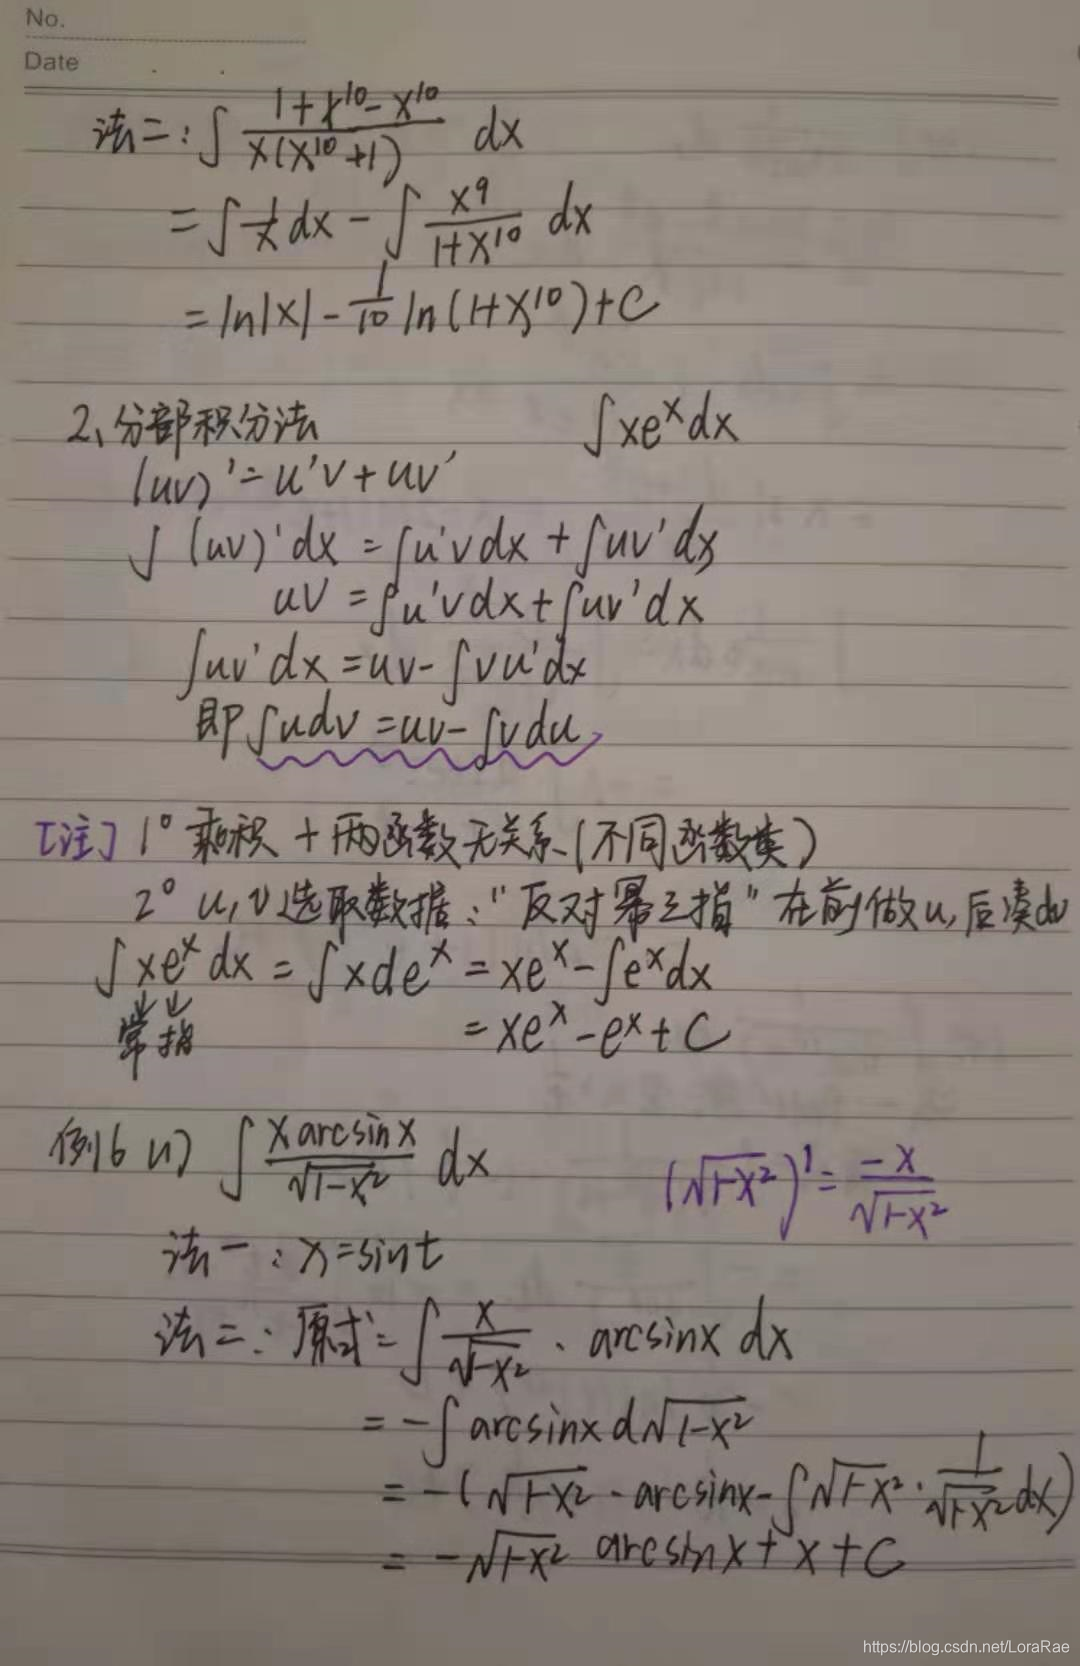 No.
Date
法二: ∫ (1+x¹⁰-x¹⁰)/(x(x¹⁰+1)) dx
= ∫ 1/x dx - ∫ x⁹/(1+x¹⁰) dx
= ln|x| - 1/10 ln(1+x¹⁰)+C
2、分部积分法 ∫xeˣdx
(uv)'=u'v+uv'
∫(uv)'dx = ∫u'vdx + ∫uv'dx
uv = ∫u'vdx+∫uv'dx
∫uv'dx=uv-∫vu'dx
即∫udv=uv-∫vdu
[注] 1° 乘积 + 两函数无关系(不同函数类)
2° u,v选取数据:"反对幂三指"在前做u,后凑dv
∫xeˣdx = ∫xdeˣ = xeˣ-∫eˣdx
幂 指 = xeˣ-eˣ+C
例6 (1) ∫ (x arcsinx)/√(1-x²) dx (√(1-x²))' = -x/√(1-x²)
法一:x=sint
法二:原式=∫ x/√(1-x²) · arcsinx dx
= -∫arcsinx d√(1-x²)
= -(√(1-x²) · arcsinx-∫√(1-x²) · 1/√(1-x²) dx)
= -√(1-x²) arcsinx+x+C
https://blog.csdn.net/LoraRae